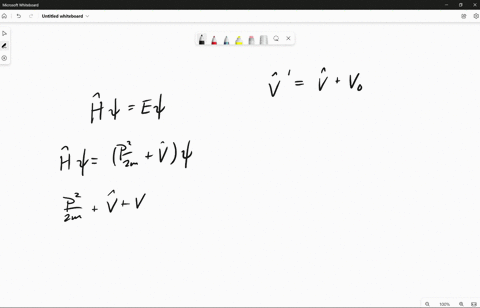 Microsoft Whiteboard
Untitled whiteboard
V̂' = V̂ + V₀
Ĥψ = Eψ
Ĥψ = (P²/2m + V̂)ψ
P²/2m + V̂ + V
100%